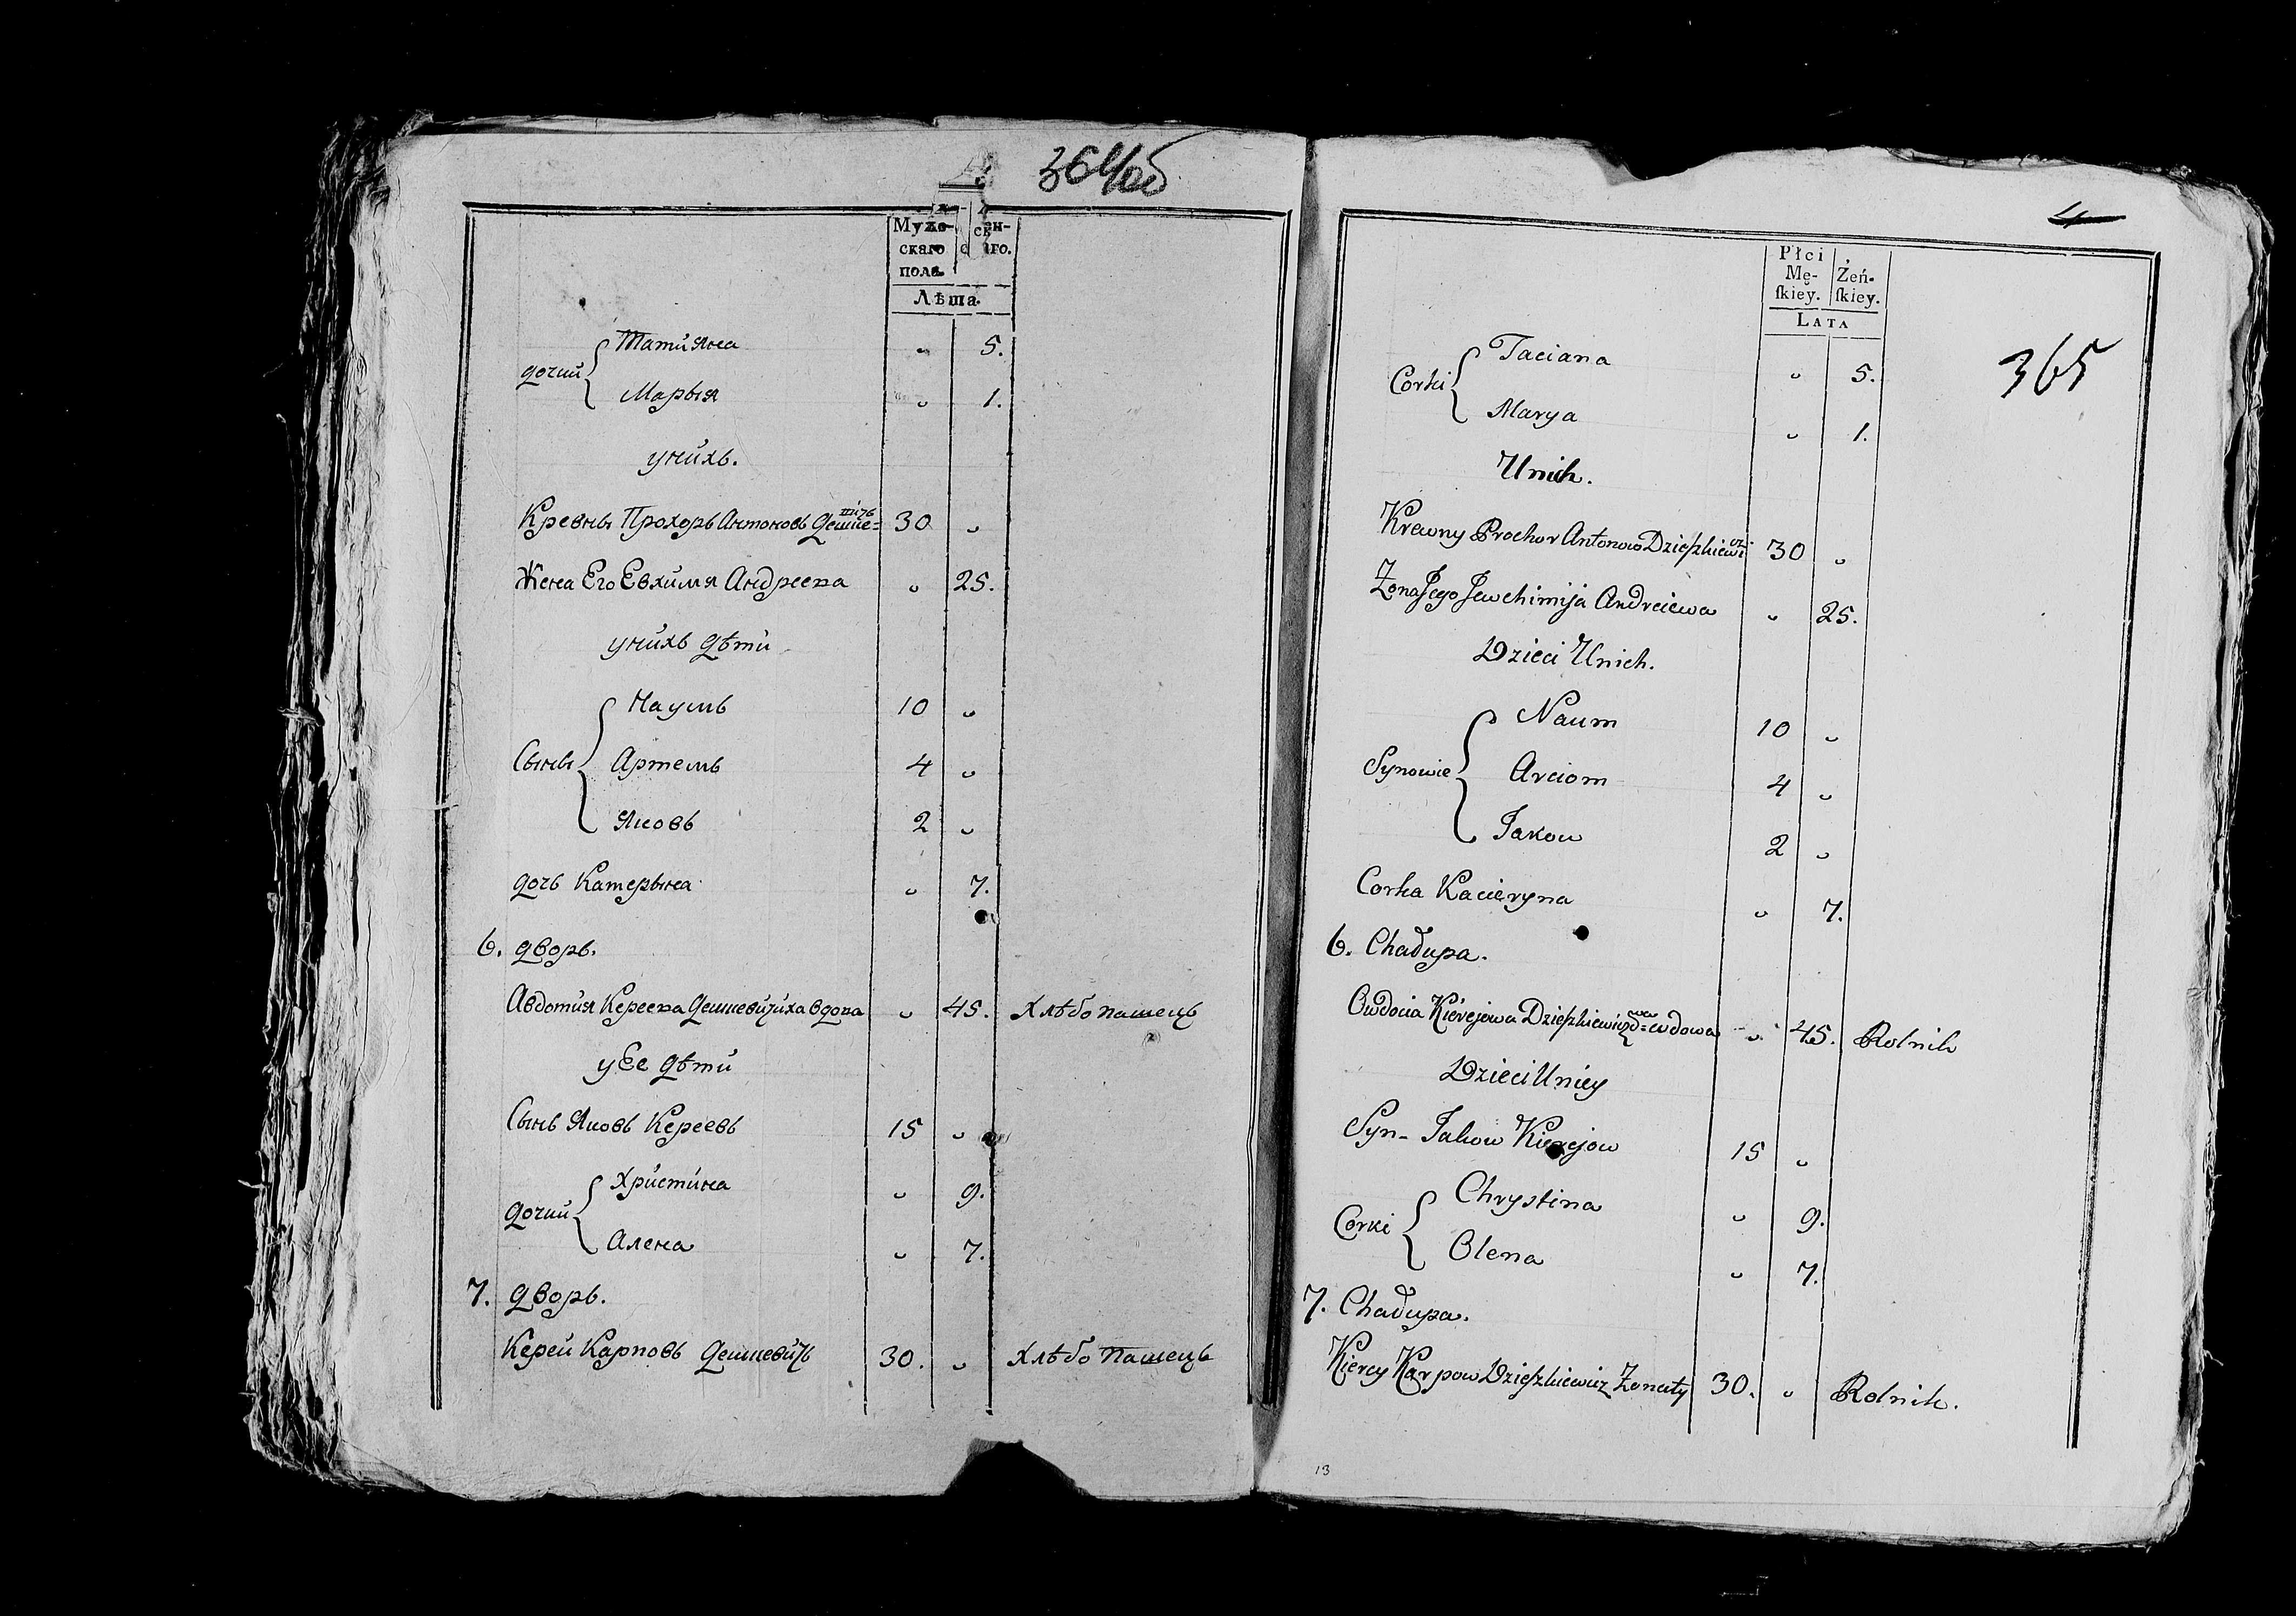 364об
Мужескаго пола. Женскаго.
Лѣта.
дочки { Татияна „ 5.
Марья „ 1.
унихъ.
Кревны Прохоръ Антоновъ Дешкевичъ 30 „
Жена Его Евхимя Андреева „ 25.
унихъ дѣти
Сыны { Наумъ 10 „
Артемъ 4 „
Яковъ 2 „
дочь Катерына „ 7.
6. дворъ.
Авдотия Кереева Дешкевичиха вдова „ 45. Хлѣбопашецъ
уЕе дѣти
Сынъ Яковъ Кереевъ 15 „
дочки { Христина „ 9.
Алена „ 7.
7. дворъ.
Керей Карповъ Дешкевичъ 30. „ Хлѣбопашецъ
4
Płci
Mę-ſkiey. Żeń-ſkiey.
LATA
365
Corki { Taciana „ 5.
Marya „ 1.
Unich.
Krewny Prochor Antonow Dzieszkiewicz 30 „
Żona Jego Jewchimija Andreiewa „ 25.
Dzieci Unich.
Synowie { Naum 10 „
Arciom 4 „
Jakow 2 „
Corka Kacieryna „ 7.
6. Chałupa.
Owdocia Kierejowa Dzieszkiewiczowa wdowa „ 45. Rolnik
Dzieci Uniey
Syn - Jakow Kierejow 15 „
Corki { Chrystina „ 9.
Olena „ 7.
7. Chałupa.
Kierey Karpow Dzieszkiewicz Żonaty 30. „ Rolnik.
13